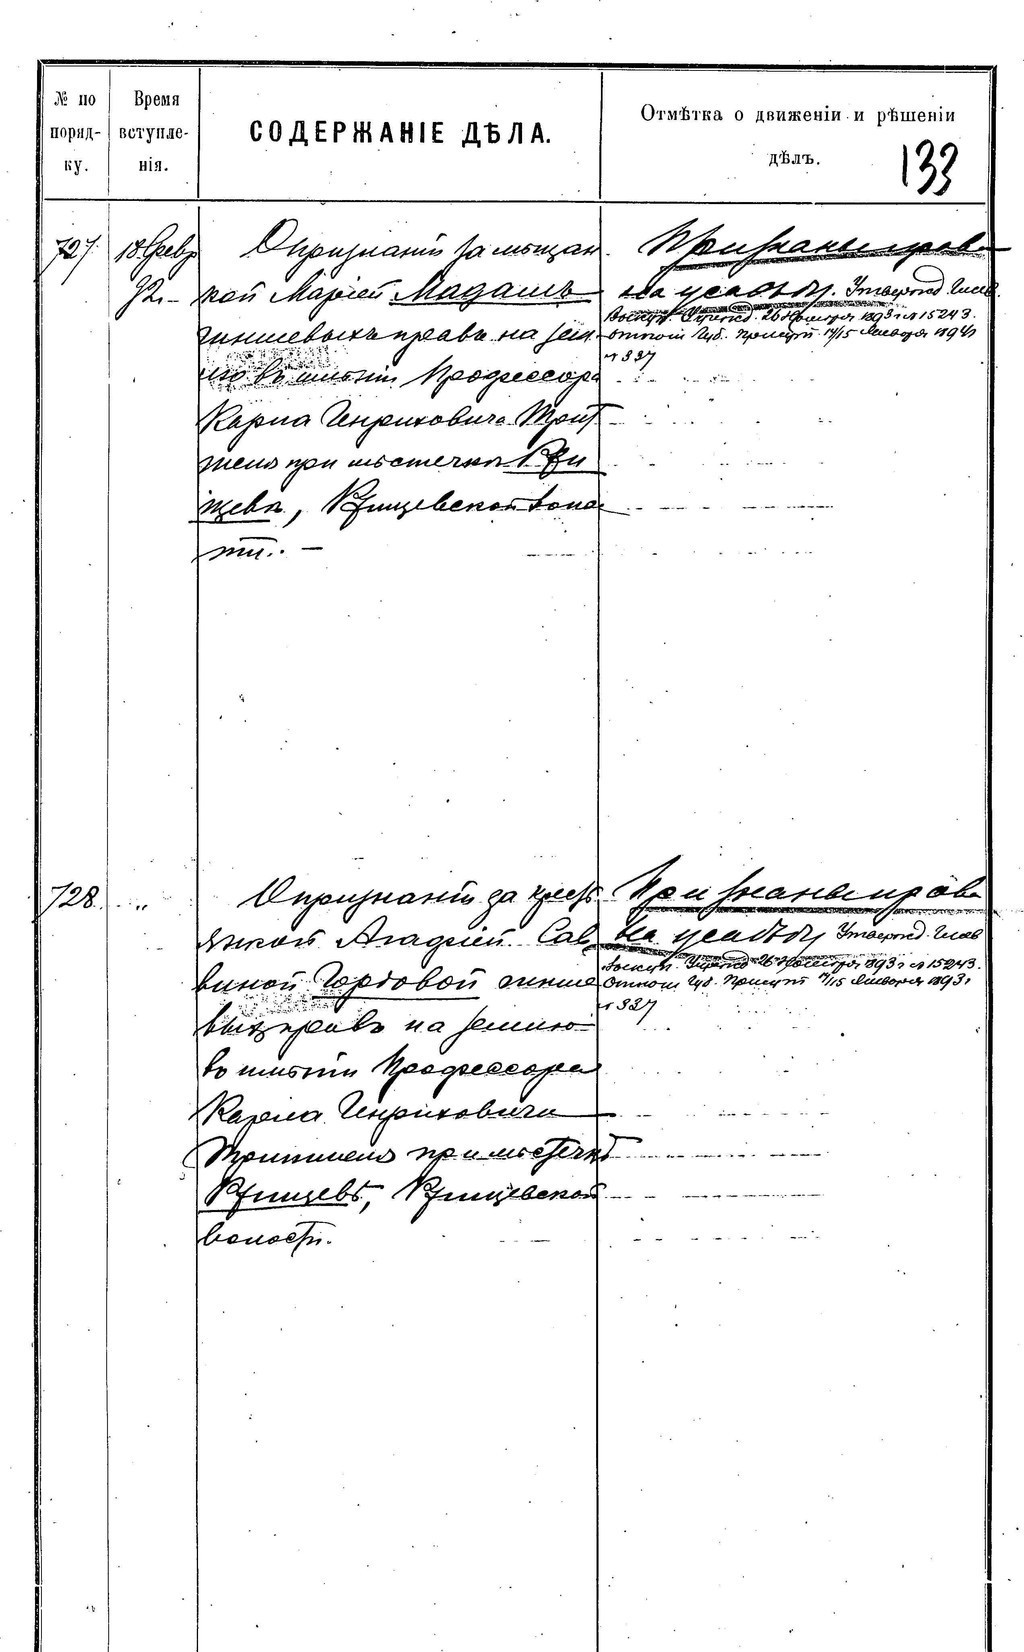 № по поряд- ку.
Время вступле- нія.
СОДЕРЖАНІЕ ДѢЛА.
Отмѣтка о движеніи и рѣшеніи
дѣлъ.
133
727.
18 Февр
92.
О признаніи за мѣщан
кой Маріей Мадашъ
чиншевыхъ правъ на зем
лю въ имѣніи Профессора
Карла Генриховича Трит
шеля при мѣстечкѣ Ржи
щевѣ, Ржищевской волос
ти. —
Признаны права
на усадьбу. Утвержд. Глав.
Выкуп. Учрежд. 26 Ноября 1893 г. № 15243.
Отнош. Губ. Присут. 14/15 Января 1894
№ 337
728.
"
О признаніи за кресть
янкой Агафіей Сав
виной Гортовой чинше
выхъ правъ на землю
въ имѣніи Профессора
Карла Генриховича
Тритшеля при мѣстечкѣ
Ржищевѣ, Ржищевской
волости.
Признаны права
на усадьбу Утвержд. Глав
Выкуп. Учрежд 26 Ноября 1893 г № 15243.
Отнош. Губ. Присут. /15 Января 1893 г
№ 337